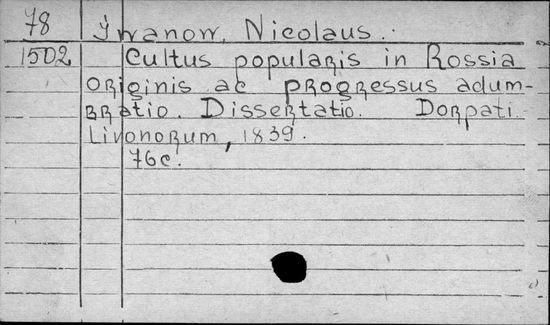 78 Ywanow, Nicolaus.
1502 Cultus popularis in Rossia
originis ac progressus adum-
bratio. Dissertatio. Dorpati
Livonorum, 1839.
76c.